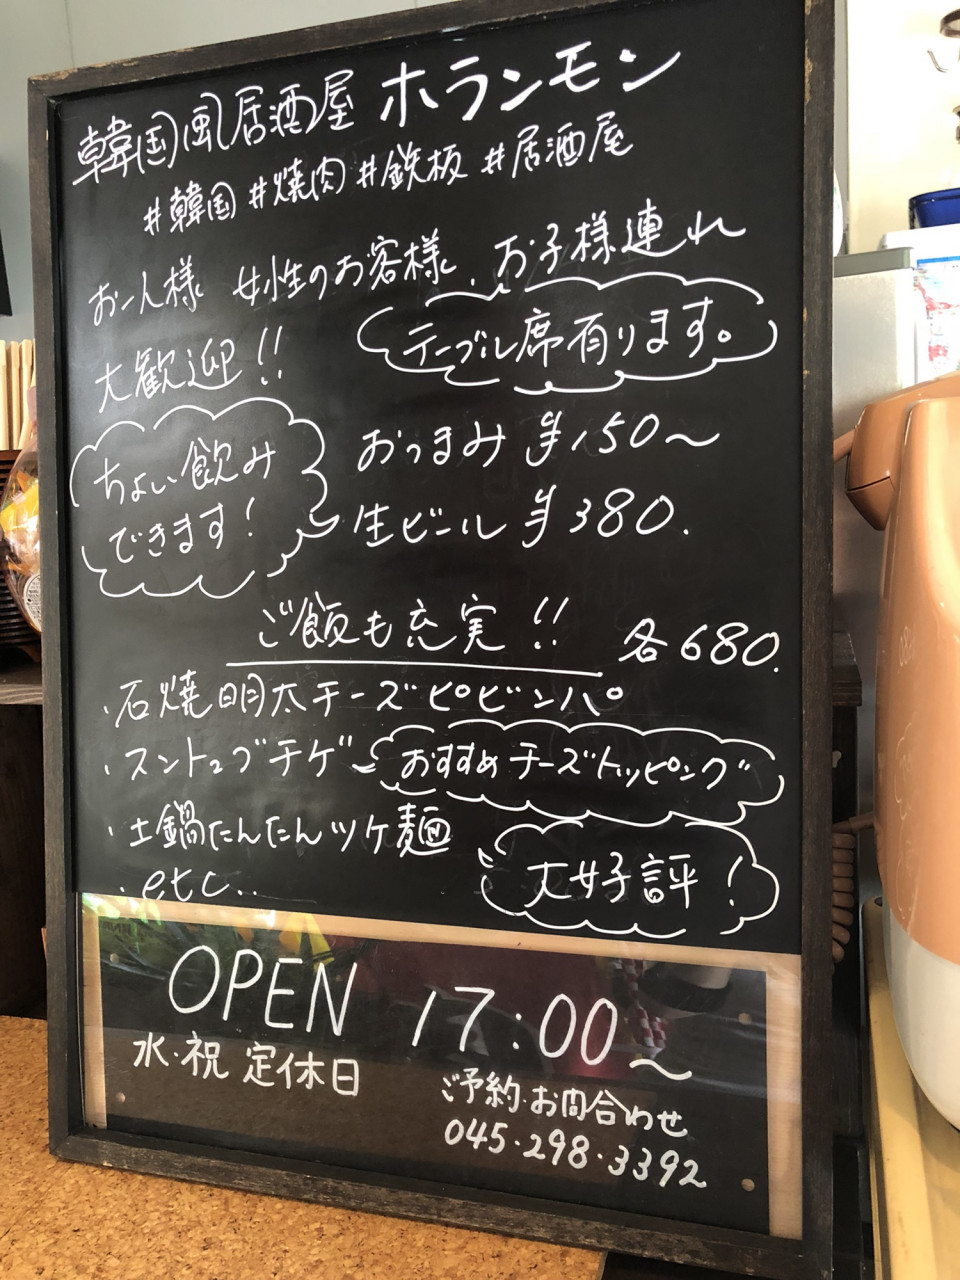 韓国風居酒屋 ホランモン
#韓国 #焼肉 #鉄板 #居酒屋
お一人様 女性のお客様、お子様連れ
大歓迎!!
テーブル席有ります。
ちょい飲み
できます!
おつまみ ¥150〜
生ビール ¥380.
ご飯も充実!! 各680.
・石焼明太チーズピビンパ
・スントゥブチゲ
おすすめチーズトッピング
・土鍋たんたんツケ麺
大好評!
・etc..
OPEN 17:00〜
水・祝 定休日
ご予約・お問合わせ
045・298・3392